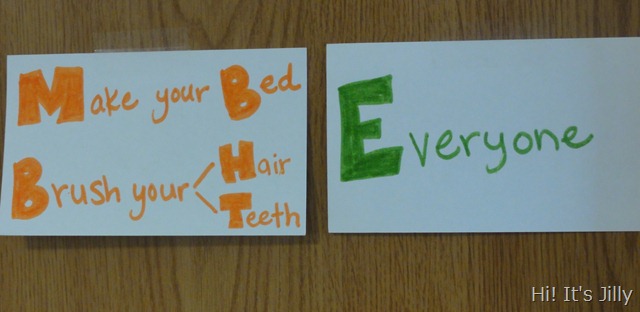 Make your Bed
Brush your Hair
Teeth
Everyone
Hi! It's Jilly